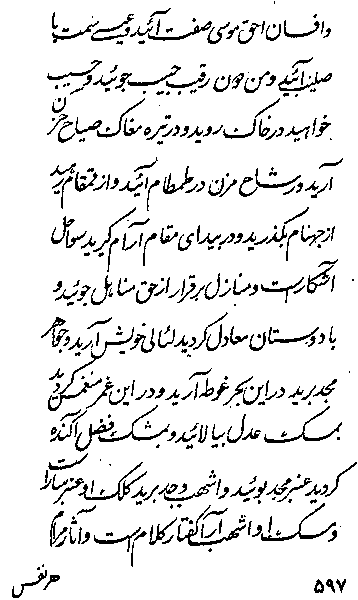 وافسان احق موسی صفت آئید و عیسی سمت با
صلیب آئید و من دون رقیب حبیب جوئید و حسیب
خواهید در خاک روید و در تیره مغاک صیاح حزن
آرید و رشاح مزن در طمطام آئید و از قمقام رهید
از جهنام بگذرید و در بیدای مقام آرام گیرید سواحل
آشکار است و منازل برقرار از حق مناهل جوئید و
با دوستان معادل گردید لئالی خویش آرید و جواهر
مجد برید در این بحر غوطه آرید و در این غمر منغمس گردید
بمسک عدل بیالائید و بمشک فضل آکنده
گردید عنبر مجد بوئید و اشهب وجد برید کلک او عنبر سار است
و مسک او اشهب آرا گفتار کلام است و آثار مرام
هر نفس
۵۹۷